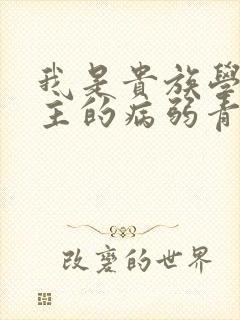 我是貴族學
主的病弱青
改變的世界